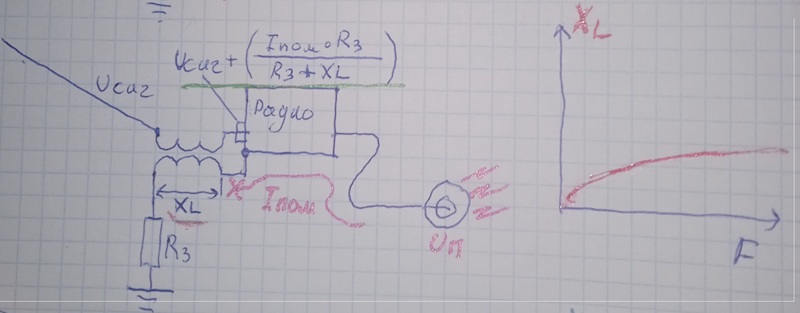 Uсиг
Uсиг + (Iпом∘Rз / Rз + XL)
Радио
XL
Iпом
Rз
Uп
XL
F